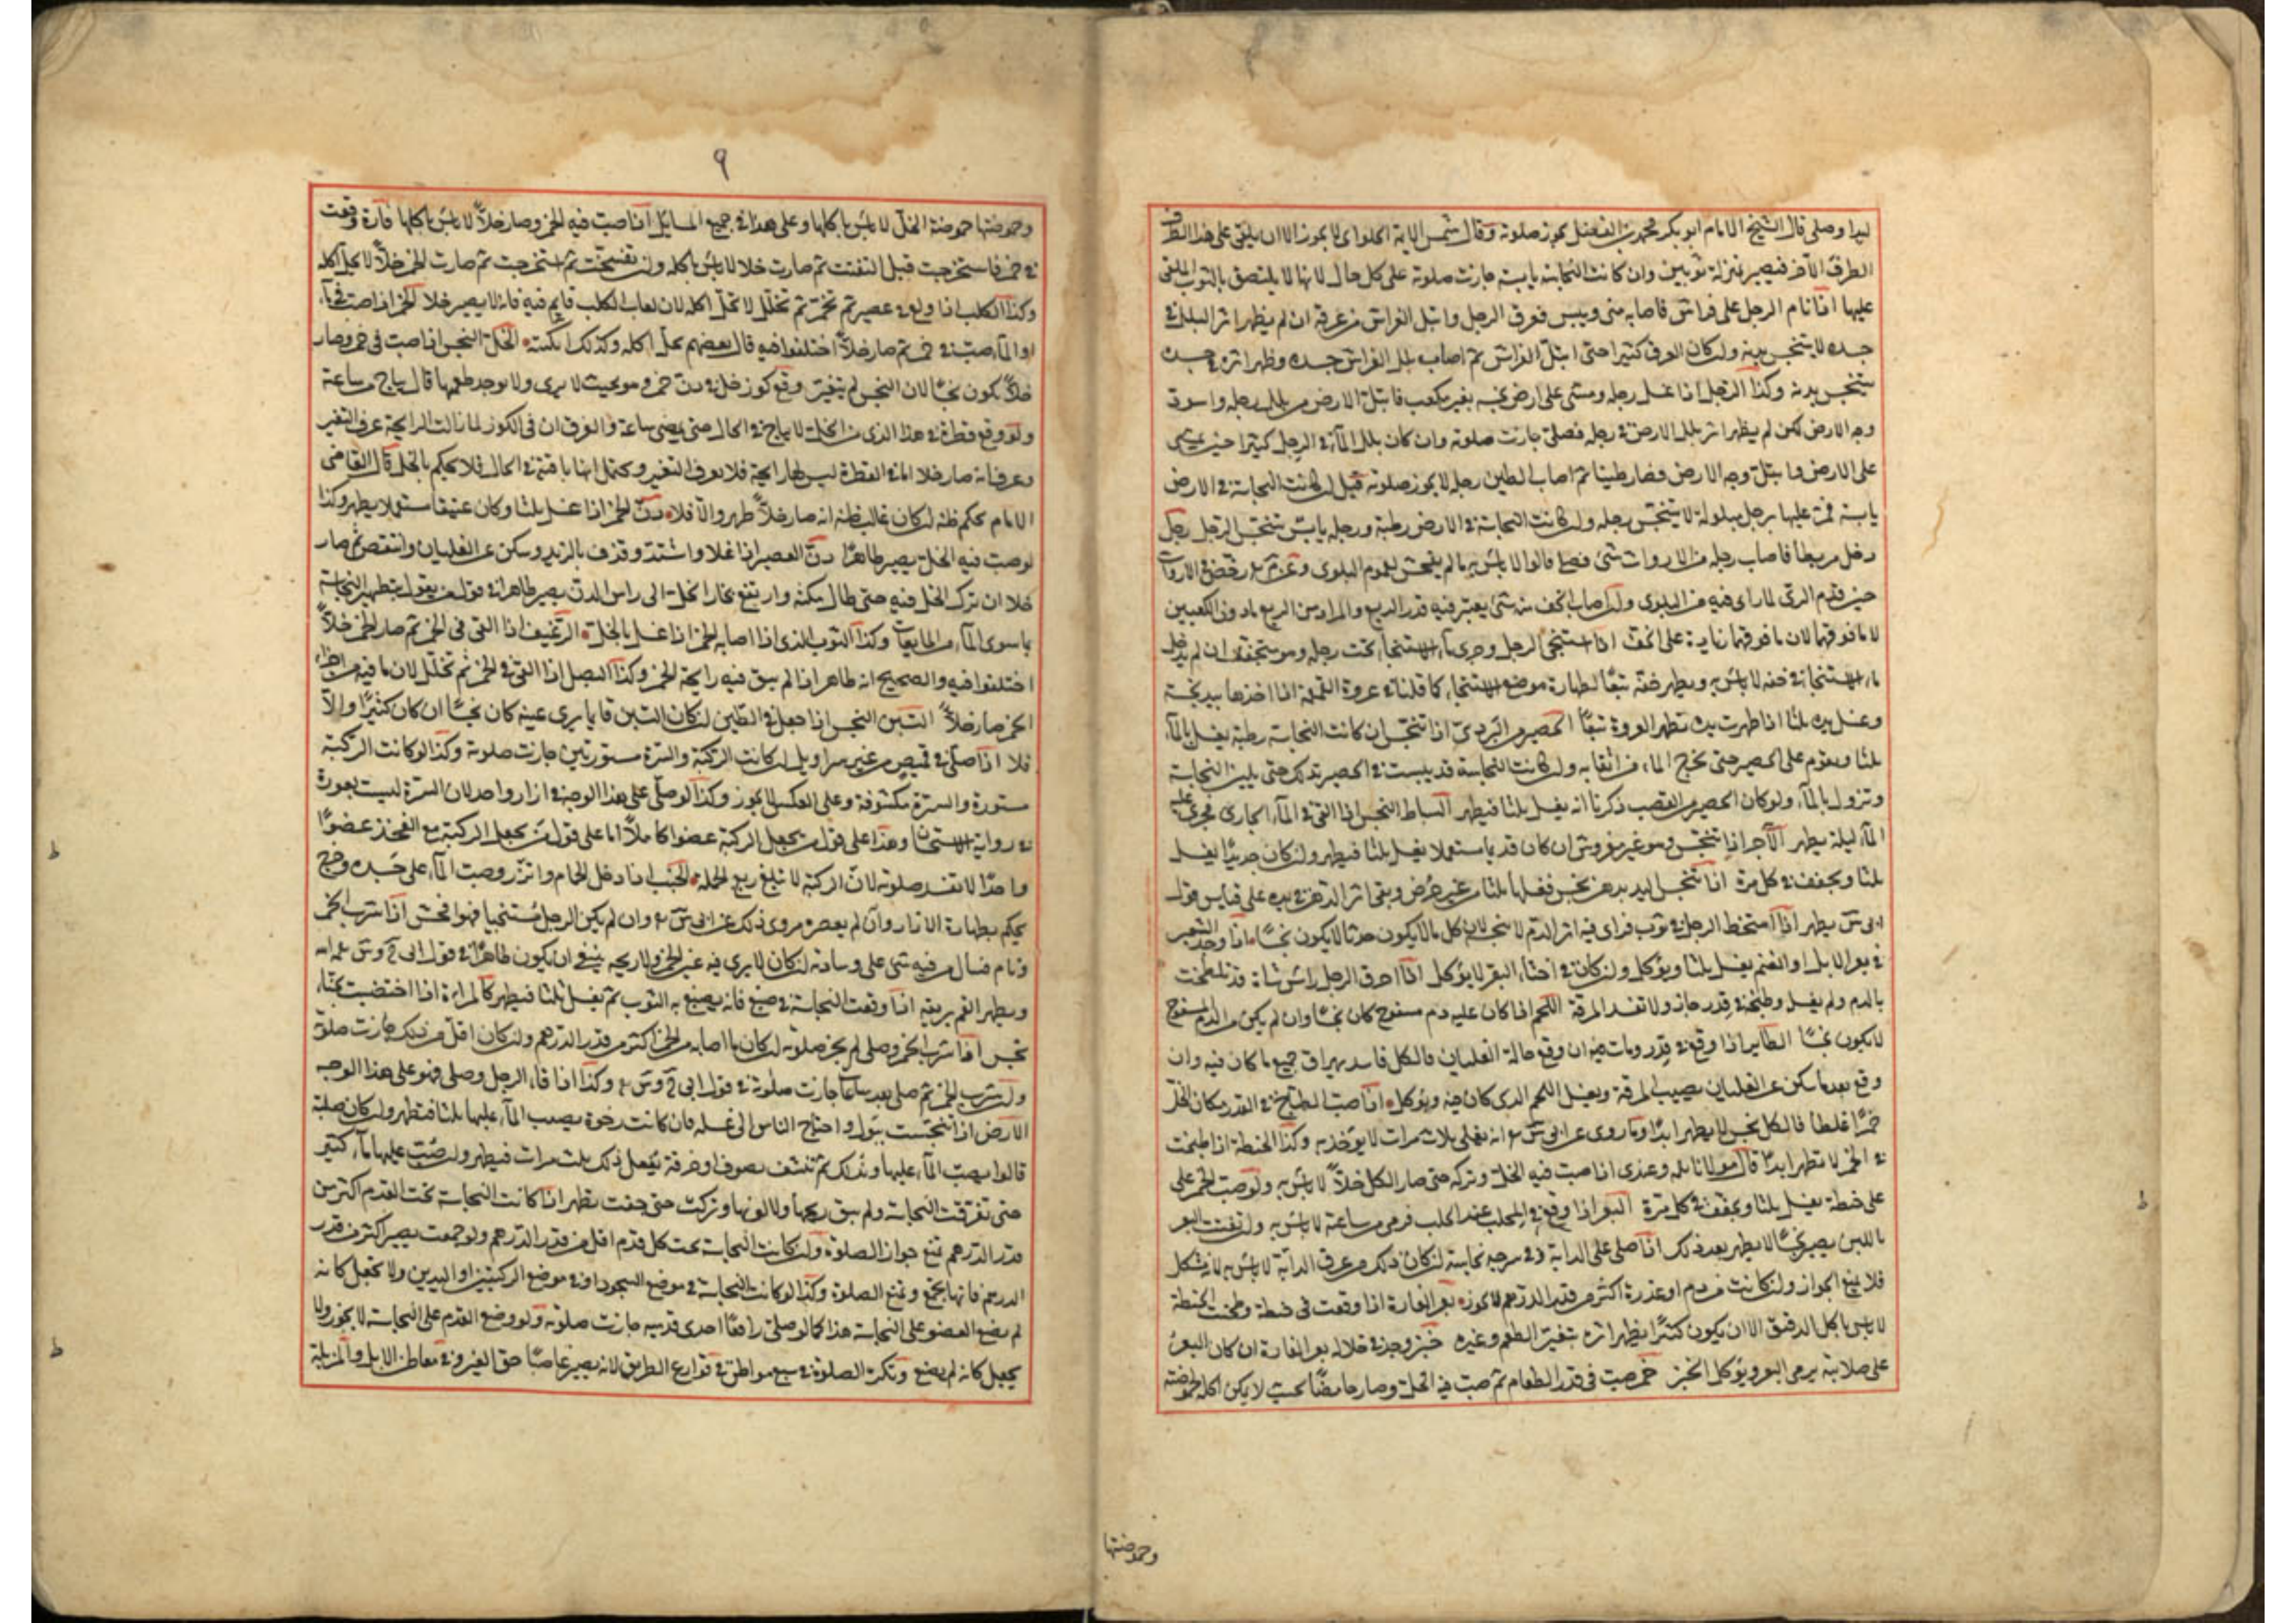 لبدا وصلى قال الشيخ الامام ابو بكر محمد بن الفضل يجوز صلوته وقال شمس الايمة الحلواى لا يجوز الا ان يلقى على هذا الطرف
الطرف الآخر فيصير بمنزلة ثوبين وان كانت النجاسة يابسة جازت صلوته على كل حال لانها لا يلتصق بالثوب الملقى
عليها اذا نام الرجل على فراش فاصابه منى ويبس فعرق الرجل وابتل الفراش من عرقه ان لم يظهر اثر البلل فى
جسده لا يتنجس بدنه وان كان العرق كثيرا حتى ابتل الفراش ثم اصاب بلل الفراش جسده وظهر اثره فى جسده
يتنجس بدنه وكذا الرجل اذا غسل رجله ومشى على ارض نجسة بغير مكعب فابتل الارض من بلل رجله واسود
وجه الارض لكن لم يظهر اثر بلل الارض فى رجله فصلى جازت صلوته وان كان بلل الماء فى الرجل كثيرا حين يمشى
على الارض وابتل وجه الارض وصار طينا ثم اصاب الطين رجله لا يجوز صلوته قيل ان كانت النجاسة فى الارض
يابسة فمر عليها برجل مبلولة لا يتنجس رجله وان كانت النجاسة فى الارض رطبة ورجله يابس تنجس الرجل رجل
دخل مربطا فاصاب رجله من الاروات شئ فصلى قالوا لا باس به ما لم يفحش لعموم البلوى وعن محمد رخص فى الاروات
حين قدم الرى لما راى فيه من البلوى وان اصاب الخف منه شئ يعتبر فيه قدر الربع والمراد من الربع ما دون الكعبين
لا ما فوقها لان ما فوقها زيادة على الخف اذا استنجى الرجل وجرى ماء الاستنجا تحت رجله وهو متخفف ان لم يدخل
ماء الاستنجا فى خفه لا باس به ويطهر خفه تبعًا لطهارة موضع الاستنجا كما قلنا فى عروة القمقمة اذا اخذها بيد نجسة
وغسل يده ثلثا اذا طهرت يده تطهر العروة تبعًا الحصير من البردى اذا تنجس ان كانت النجاسة رطبة يغسل بالماء
ثلثا ويقوم على الحصير حتى يخرج الماء من اثقابه وان كانت النجاسة قد يبست فى الحصير تدلك حتى يلين النجاسة
وتزول بالماء ولو كان الحصير من القصب ذكرنا انه يغسل ثلثا فيطهر البساط النجس اذا القى فى الماء الجارى فجرى عليه
الماء ليلة يطهر الآجر اذا تنجس وهو غير مفروش ان كان قديما مستعملا يغسل ثلثا فيطهر وان كان جديدًا يغسل
ثلثا ويجفف فى كل مرة اذا تنجس اليد بدهن نجس فغسلها ثلثا من غير حرض وبقى اثر الدهن فى يده على قياس قول
ابى س يطهر اذا امتخط الرجل فى ثوب فراى فيه اثر الدم لا يتنجس لان كل مالا يكون حدثا لا يكون نجسا اذا وجد الشعير
فى بعر الابل او الغنم يغسل ثلثا ويؤكل وان كان فى اخثاء البقر لا يؤكل اذا احرق الرجل راس شاة قد تلطخت
بالدم ولم يغسل وطبخه فى قدر جاز ولا تفسد المرقة اللحم اذا كان عليه دم مسفوح كان نجسا وان لم يكن من الدم المسفوح
لا يكون نجسًا الطاير اذا وقع فى قدر ومات فيه ان وقع حالة الغليان فالكل فاسد يهراق جميع ما كان فيه وان
وقع بعد ما سكن عن الغليان يصب المرقة ويغسل اللحم الذى كان فيه ويؤكل اذا صب الطباخ فى القدر مكان الخل
خمرًا غلطا فالكل نجس لا يطهر ابدًا وما روى عن ابى س انه يغلى ثلاث مرات لا يؤخذ به وكذا الحنطة اذا طبخت
فى الخمر لا تطهر ابدًا قال مولانا وعندى اذا صب فيه الخل وتركه حتى صار الكل خلا لا باس به ولو صب الخمر على
حنطة يغسل ثلثا ويجفف فى كل مرة البعر اذا وقع فى المحلب عند الحلب فرمى من ساعته لا باس به وان تفتت البعر
باللبن يصير نجسًا لا يطهر بعد ذلك اذا صلى على الدابة وفى سرجه نجاسة ان كان ذلك من عرق الدابة لا باس به
فلا يمنع الجواز وان كانت من دم او عذرة اكثر من قدر الدرهم لا يجوز بعر الفارة اذا وقعت فى حنطة وطحنت الحنطة
لا باس باكل الدقيق الا ان يكون كثيرًا يظهر اثره بتغير الطعم وغيره خبز وجد فى خلاله بعر الفارة ان كان البعر
على صلابته يرمى البعر ويؤكل الخبز خمر صب فى قدر الطعام ثم صب فيه الخل وصار حامضًا بحيث لا يمكن اكله لحموضته
وحموضتها
٩
وحموضتها حموضة الخل لا باس باكلها وعلى هذا فى جميع المسايل اذا صب فيه الخمر وصار خلاً لا باس باكلها فارة وقعت
فى خمر فاستخرجت قبل التفتت ثم صارت خلا لا باس باكله وان تفسخت ثم استخرجت ثم صارت الخمر خلاً لا يحل اكله
وكذا الكلب اذا ولغ فى عصير ثم تخمر ثم تخلل لا تحل اكله لان لعاب الكلب قايم فيه فانه لا يصير خلا الخمر اذا صب فى ماء
او الماء صب فى خمر ثم صار خلاً اختلفوا فيه قال بعضهم يحل اكله وكذلك الخل النجس اذا صب فى خمر وصار
خلاً يكون نجسًا لان النجس لم يتغير وقع كوز خل فى دن خمر وهو بحيث لا يرى ولا يوجد طعمها قال يباح من ساعة
ولو وقع قطرة فى هذا الدن من الخل لا يباح فى الحال حتى يمضى ساعة والفرق ان فى الكوز لما زالت الرايحة عرف التغير
وعرف انه صار خلا اما فى القطرة ليس لها رايحة فلا يعرف التغير ويحتمل انها باقية فى الحال فلا يحكم بالخل قال القاضى
الامام يحكم ظنه ان كان غالب ظنه انه صار خلاً طهر والا فلا دن الخمر اذا غسل ثلثا وكان عتيقا مستعملا يطهر وكذا
لو صب فيه الخل يصير طاهرًا دن العصير اذا غلا واشتد وقذف بالزبد وسكن عن الغليان وانتقص ثم صار
خلا ان ترك الخل فيه حتى طال مكثه وارتفع بخار الخل الى راس الدن يصير طاهرا فى قول من يقول بتطهير النجاسة
بما سوى الماء من المايعات وكذا الثوب الذى اذا اصابه الخمر اذا غسل بالخل الرغيف اذا القى فى الخمر ثم صار الخمر خلاً
اختلفوا فيه والصحيح انه طاهر اذا لم يبق فيه رايحة الخمر وكذا البصل اذا القى فى الخمر ثم تخلل لان ما فيه من اجزاء
الخمر صار خلاً التبن النجس اذا جعل فى الطين ان كان التبن قايما يرى عينه كان نجسًا ان كان كثيرًا والا
فلا اذا صلى فى قميص من غير سراويل ان كانت الركبة والسرة مستورتين جازت صلوته وكذا لو كانت الركبة
مستورة والسرة مكشوفة وعلى العكس لا يجوز وكذا لو صلى على هذا الوجه فى ازار واحد لان السرة ليست بعورة
فى رواية الاستحسان وهذا على قول من يجعل الركبة عضوا كاملاً اما على قول من يجعل الركبة مع الفخذ عضوًا
واحدًا لا تفسد صلوته لان الركبة لا تبلغ ربع الجملة الجنب اذا دخل الحمام واتزر وصب الماء على جسده وخرج
يحكم بطهارة الازار وان لم يعصره مروى ذلك عن ابى س وان لم يكن الرجل مستنجيا فهو افحش اذا شرب الخمر
ونام فسال من فيه شئ على وسادته ان كان لا يرى فيه عين الخمر ولا ريحه ينبغى ان يكون طاهرًا فى قول ابى ح وس
ويطهر الفم بريقه اذا وقعت النجاسة فى صبغ فانه يصبغ به الثوب ثم يغسل ثلثا فيطهر كالمراة اذا اختضبت بحناء
نجس اذا شرب الخمر وصلى لم يجز صلوته ان كان ما اصابه من الخمر اكثر من قدر الدرهم وان كان اقل من ذلك جازت صلوته
وان شرب الخمر ثم صلى بعد ساعات جازت صلوته فى قول ابى ح وس وكذا اذا قاء الرجل وصلى فهو على هذا الوجه
الارض اذا تنجست ببول واحتاج الناس الى غسله فان كانت رخوة يصب الماء عليها ثلثا فتطهر وان كان صلبة
قالوا يصب الماء عليها وتدلك ثم تنشف بصوف او خرقة يفعل ذلك ثلث مرات فيطهر وان صب عليها ماء كثير
حتى تفرقت النجاسة ولم يبق ريحها ولا لونها وتركت حتى جفت تطهر اذا كانت النجاسة تحت القدم اكثر من
قدر الدرهم تمنع جواز الصلوة وان كانت النجاسة تحت كل قدم اقل من قدر الدرهم ولو جمعت يصير اكثر من قدر
الدرهم فانها تجمع وتمنع الصلوة وكذا لو كانت النجاسة فى موضع السجود او فى موضع الركبتين او اليدين ولا تجعل كانه
لم يضع العضو على النجاسة هذا كما لو صلى رافعًا احدى قدميه جازت صلوته ولو وضع القدم على النجاسة لا يجوز ولا
يجعل كانه لم يضع وتكره الصلوة فى سبع مواطن فى قوارع الطريق لانه يصير غاصبًا حق الغير وفى معاطن الابل والمزبلة